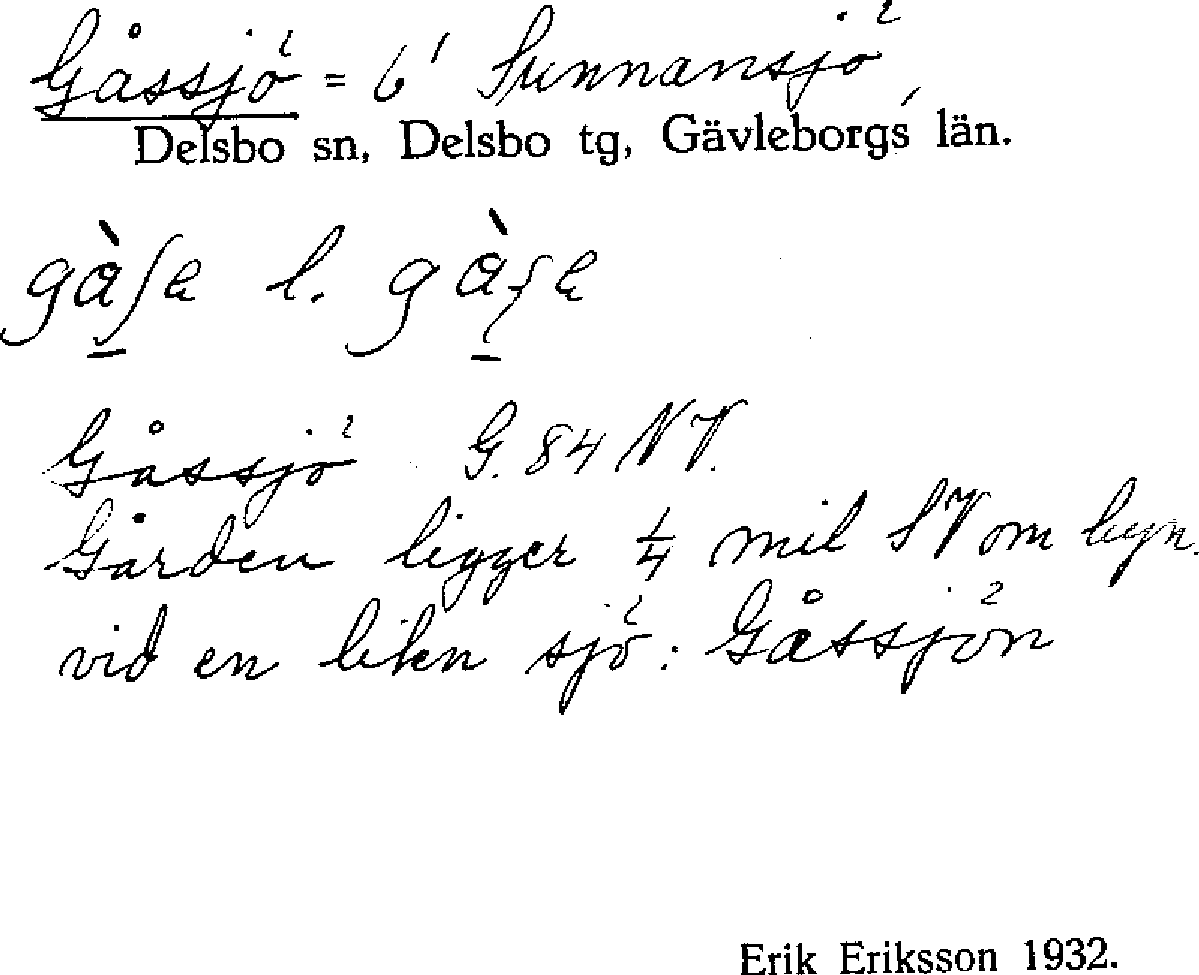 Gåssjö = 6' Sunnansjö
Delsbo sn, Delsbo tg, Gävleborgs län.
l.
Gåssjö G. 84 NV.
Gården ligger 1/4 mil SV om byn.
vid en liten sjö: Gåssjön
Erik Eriksson 1932.